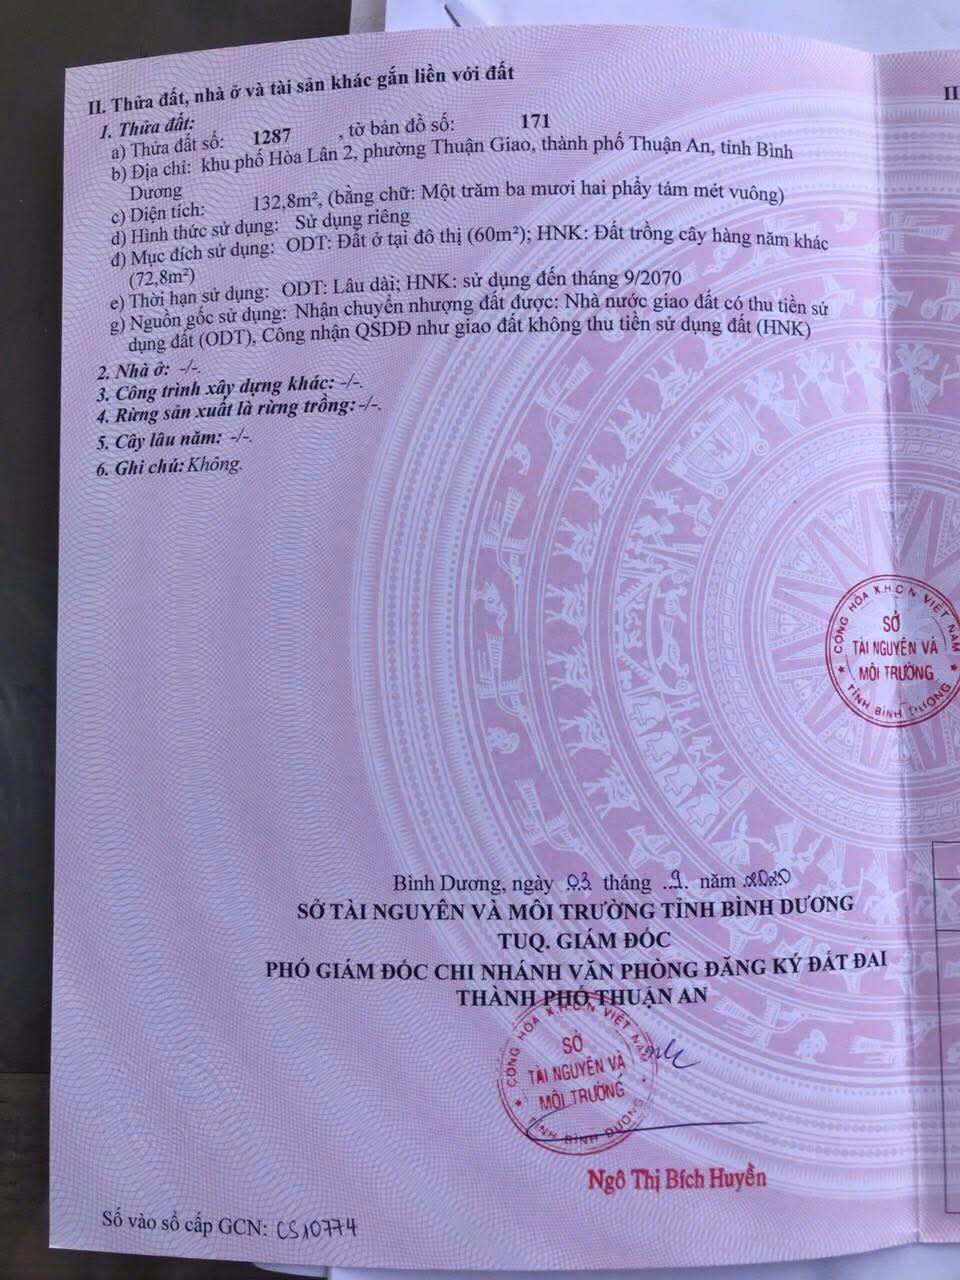 II. Thửa đất, nhà ở và tài sản khác gắn liền với đất
1. Thửa đất:
a) Thửa đất số: 1287 , tờ bản đồ số: 171
b) Địa chỉ: khu phố Hòa Lân 2, phường Thuận Giao, thành phố Thuận An, tỉnh Bình
Dương
c) Diện tích: 132,8m², (bằng chữ: Một trăm ba mươi hai phẩy tám mét vuông)
d) Hình thức sử dụng: Sử dụng riêng
đ) Mục đích sử dụng: ODT: Đất ở tại đô thị (60m²); HNK: Đất trồng cây hàng năm khác
(72,8m²)
e) Thời hạn sử dụng: ODT: Lâu dài; HNK: sử dụng đến tháng 9/2070
g) Nguồn gốc sử dụng: Nhận chuyển nhượng đất được: Nhà nước giao đất có thu tiền sử
dụng đất (ODT), Công nhận QSDĐ như giao đất không thu tiền sử dụng đất (HNK)
2. Nhà ở: -/-.
3. Công trình xây dựng khác: -/-.
4. Rừng sản xuất là rừng trồng: -/-.
5. Cây lâu năm: -/-.
6. Ghi chú: Không.
II
CỘNG HÒA X.H.C.N VIỆT NAM
SỞ
TÀI NGUYÊN VÀ
MÔI TRƯỜNG
TỈNH BÌNH DƯƠNG
Bình Dương, ngày 03 tháng .9. năm 2020
SỞ TÀI NGUYÊN VÀ MÔI TRƯỜNG TỈNH BÌNH DƯƠNG
TUQ. GIÁM ĐỐC
PHÓ GIÁM ĐỐC CHI NHÁNH VĂN PHÒNG ĐĂNG KÝ ĐẤT ĐAI
THÀNH PHỐ THUẬN AN
CỘNG HÒA X.H.C.N VIỆT NAM
SỞ
TÀI NGUYÊN VÀ
MÔI TRƯỜNG
TỈNH BÌNH DƯƠNG
Ngô Thị Bích Huyền
Số vào sổ cấp GCN: CS10774